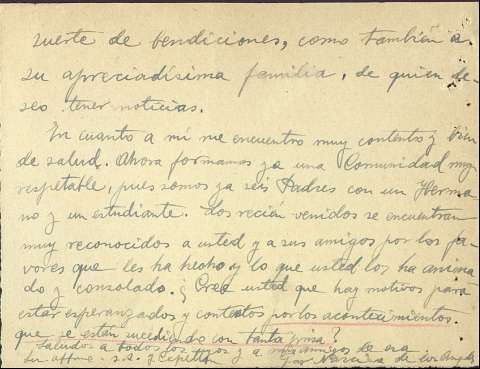 suerte de bendiciones, como también a
su apreciadísima familia, de quien de-
seo tener noticias.
En cuanto a mí me encuentro muy contento y bien
de salud. Ahora formamos ya una Comunidad muy
respetable, pues somos ya seis Padres con un Herma
no y un estudiante. Los recién venidos se encuentran
muy reconocidos a usted y a sus amigos por los fa-
vores que les ha hecho y lo que usted los ha anima
do y consolado. ¿Cree usted que hay motivos para
estar esperanzados y contentos por los acontecimientos.
que se están sucediendo con tanta prisa?
Saludos a todos los suyos y a mis amigos de esa
Su affmo. s.s. y Capellán Fray de los Angeles